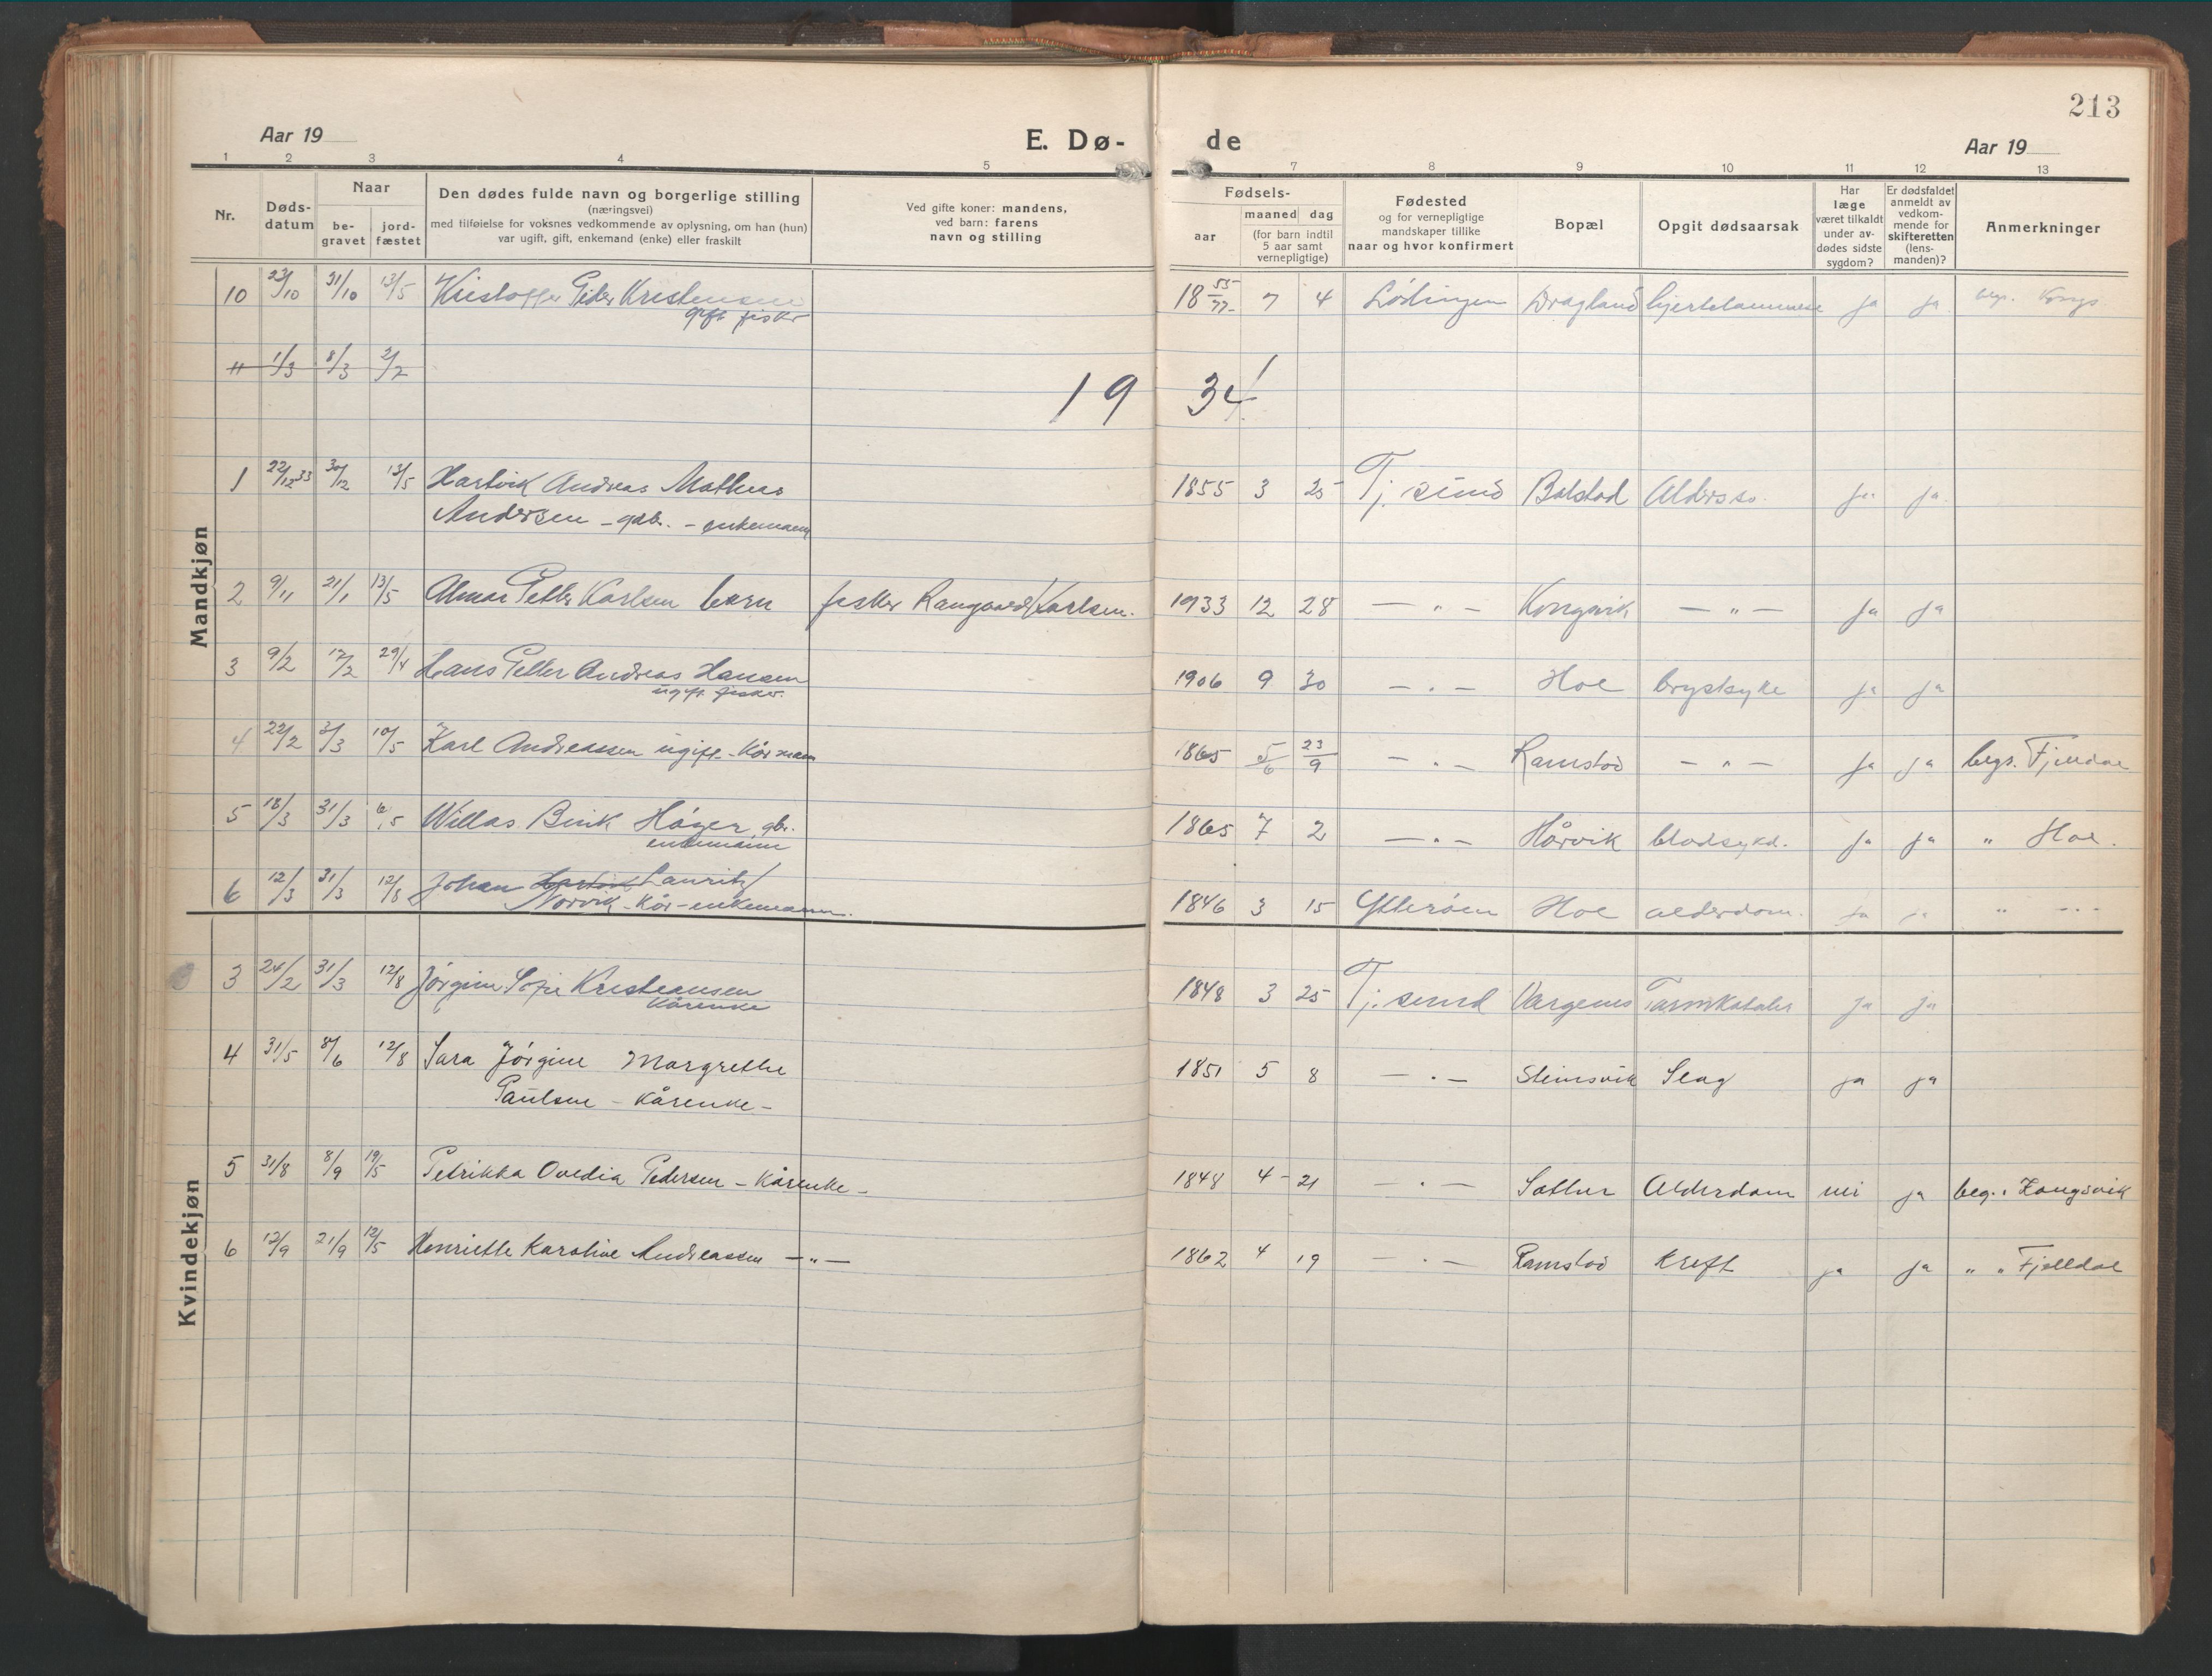 213
Aar 19
E. Dø-
de
Aar 19
1 2 3 4 5 7 8 9 10 11 12 13
Nr.
Døds-
datum
Naar
be-
gravet
jord-
fæstet
Den dødes fulde navn og borgerlige stilling
(næringsvei)
med tilføielse for voksnes vedkommende av oplysning, om han (hun)
var ugift, gift, enkemand (enke) eller fraskilt
Ved gifte koner: mandens,
ved barn: farens
navn og stilling
Fødsels-
aar
maaned dag
(for barn indtil
5 aar samt
vernepligtige)
Fødested
og for vernepligtige
mandskaper tillike
naar og hvor konfirmert
Bopæl
Opgit dødsaarsak
Har
læge
været tilkaldt
under av-
dødes sidste
sygdom?
Er dødsfaldet
anmeldt av
vedkom-
mende for
skifteretten
(lens-
manden)?
Anmerkninger
Mandkjøn
10 23/10 31/10 13/5 Kristoffer Peder Kristensen 18 55/77 7 4 Lødingen Dragland hjertelammelse ja ja begr. Kongs
gift fisker
11 1/3 8/3 2/2
19 34
1 22/12 33 30/12 13/5 Hartvik Andreas Mathias 1855 3 25 Tj. sund Balstad Alderss. ja ja
Andersen - gdbr. - enkemann
2 9/11 21/1 13/5 Almar Petter Karlsen barn fisker Rangvard Karlsen. 1933 12 28 — " — Kongsvik — " — ja ja
3 9/2 17/2 29/4 Hans Petter Andreas Hansen 1906 9 30 — " — Hol brystsyke ja ja
ugift fisker.
4 22/2 3/3 10/5 Karl Andreassen ugift - Kårmann 1865 5/6 23/9 — " — Ramstad — " — ja ja begr. Fjelldal
5 18/3 31/3 6/5 Willas Berik Høger, gbr. 1865 7 2 — " — Hårvik blodsykd. ja ja " Hol.
enkemann
6 12/3 31/3 12/8 Johan Lauritz 1846 3 15 Ytterøen Hol alderdom. ja ja " - - -
Norvik - Kår - enkemann.
Kvindekjøn
3 24/2 31/3 12/8 Jørgine Sofie Kristiansen 1848 3 25 Tj. sund Vargenes Tarmkatahr ja ja
Kårenke
4 31/5 8/6 12/8 Sara Jørgine Margrethe 1851 5 8 — " — Steinsvik Slag ja ja
Paulsen - Kårenke -
5 31/8 8/9 19/5 Petrikka Ovedia Pedersen - Kårenke - 1848 4 - 21 — " — Sættur Alderdom nei ja beg. i Kongsvik
6 12/9 21/9 12/5 Henriette Karoline Andreassen — " — 1862 4 19 — " — Ramstad Kreft ja ja " " Fjelldal